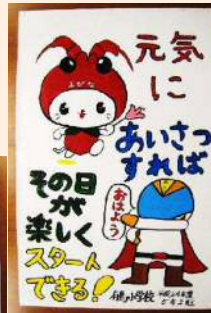 元気
に
あいさつ
すれば
おはよう
その日
が
楽しく
スタート
できる!
小学校